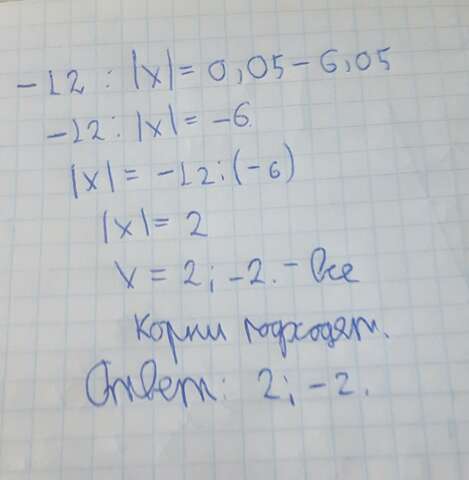 -12 : |x| = 0,05 - 6,05
-12 : |x| = -6
|x| = -12 : (-6)
|x| = 2
x = 2; -2. - Все
корни подходят.
Ответ: 2; -2.